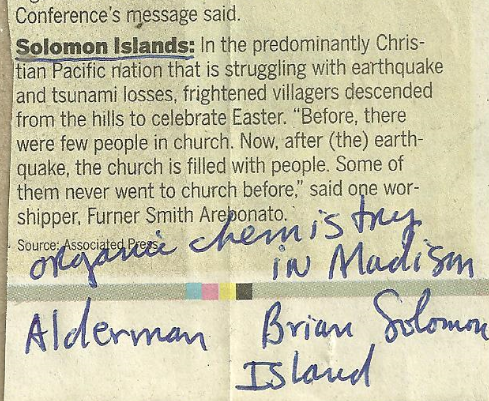 Conference's message said.
Solomon Islands: In the predominantly Chris-
tian Pacific nation that is struggling with earthquake
and tsunami losses, frightened villagers descended
from the hills to celebrate Easter. "Before, there
were few people in church. Now, after (the) earth-
quake, the church is filled with people. Some of
them never went to church before," said one wor-
shipper, Furner Smith Arebonato.
Source: Associated Press
organic chemistry
in Madison
Alderman Brian Solomon
Island